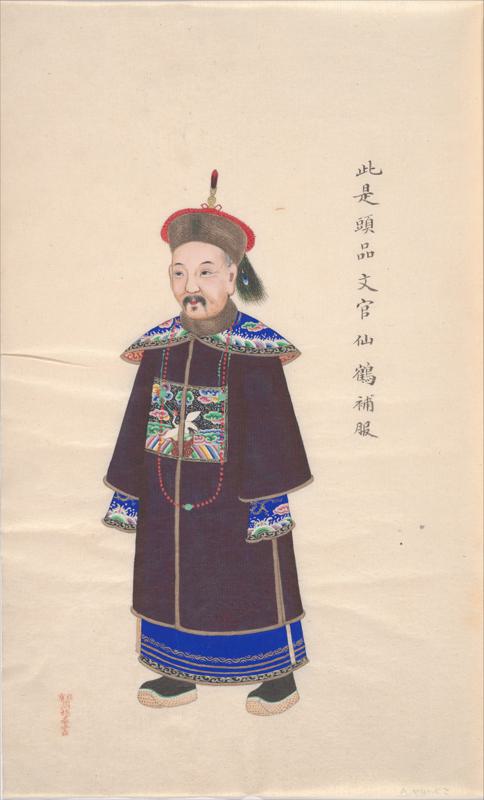 此是頭品文官仙鶴補服